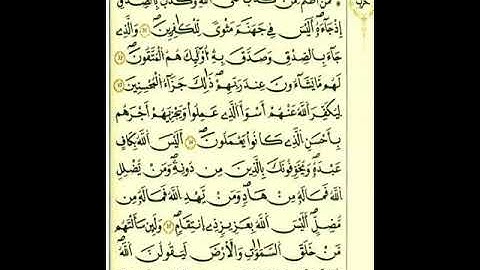 فَمَنْ أَظْلَمُ مِمَّن كَذَبَ عَلَى ٱللَّهِ وَكَذَّبَ بِٱلصِّدْقِ
إِذْ جَآءَهُۥٓ أَلَيْسَ فِى جَهَنَّمَ مَثْوًى لِّلْكَٰفِرِينَ وَٱلَّذِى
جَآءَ بِٱلصِّدْقِ وَصَدَّقَ بِهِۦٓ أُو۟لَٰٓئِكَ هُمُ ٱلْمُتَّقُونَ
لَهُم مَّا يَشَآءُونَ عِندَ رَبِّهِمْ ذَٰلِكَ جَزَآءُ ٱلْمُحْسِنِينَ
لِيُكَفِّرَ ٱللَّهُ عَنْهُمْ أَسْوَأَ ٱلَّذِى عَمِلُوا۟ وَيَجْزِيَهُمْ أَجْرَهُم
بِأَحْسَنِ ٱلَّذِى كَانُوا۟ يَعْمَلُونَ أَلَيْسَ ٱللَّهُ بِكَافٍ
عَبْدَهُۥ وَيُخَوِّفُونَكَ بِٱلَّذِينَ مِن دُونِهِۦ وَمَن يُضْلِلِ
ٱللَّهُ فَمَا لَهُۥ مِنْ هَادٍ وَمَن يَهْدِ ٱللَّهُ فَمَا لَهُۥ مِن
مُّضِلٍّ أَلَيْسَ ٱللَّهُ بِعَزِيزٍ ذِى ٱنتِقَامٍ وَلَئِن سَأَلْتَهُم
مَّنْ خَلَقَ ٱلسَّمَٰوَٰتِ وَٱلْأَرْضَ لَيَقُولُنَّ ٱللَّهُ